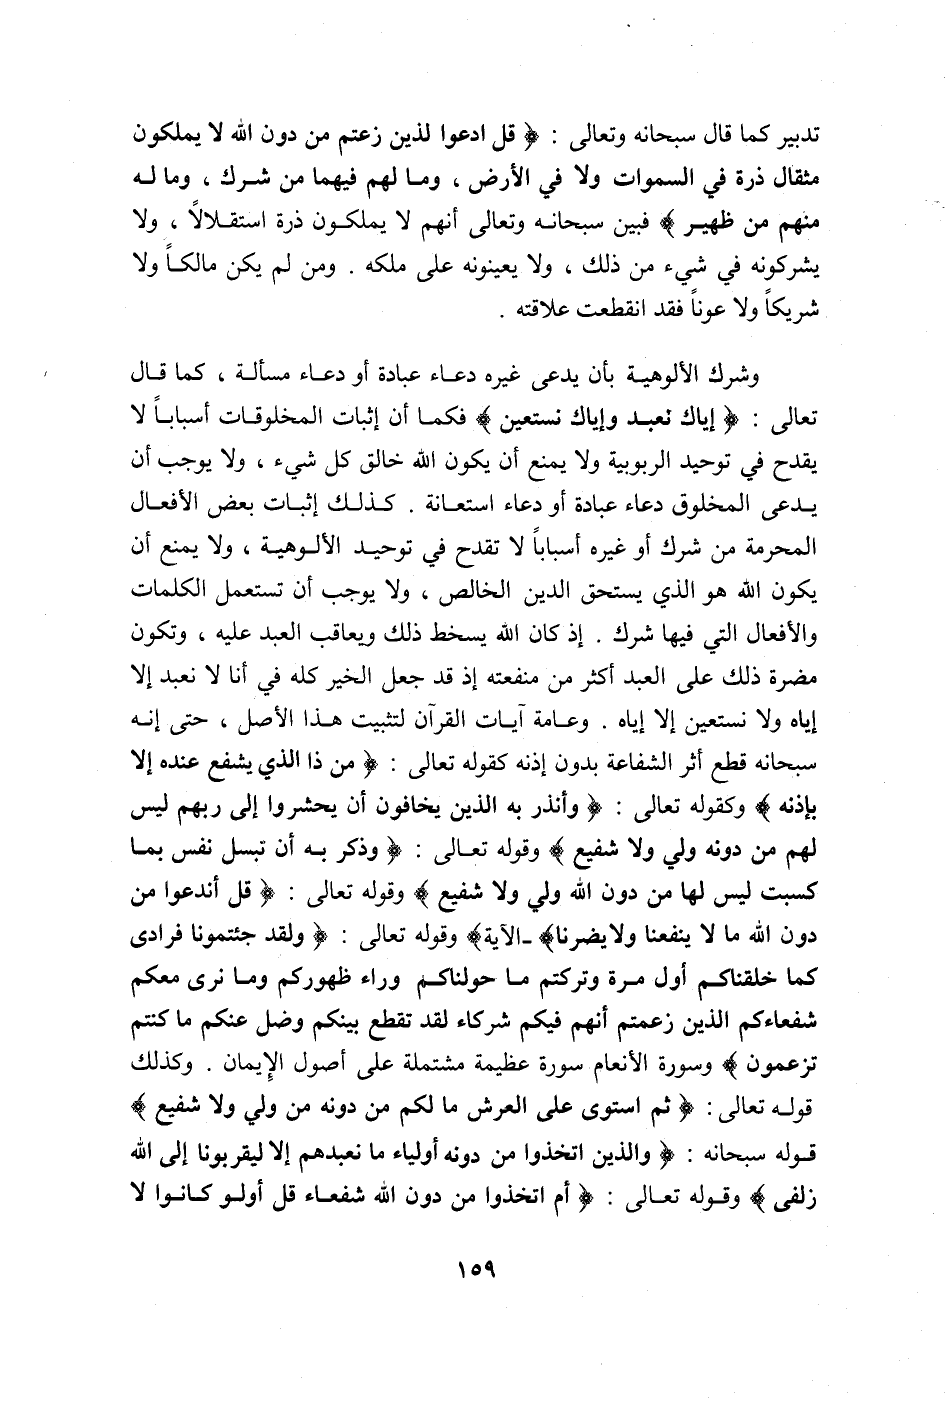 تدبير كما قال سبحانه وتعالى : ﴿ قل ادعوا لذين زعتم من دون الله لا يملكون
مثقال ذرة في السموات ولا في الأرض ، وما لهم فيهما من شرك ، وما له
منهم من ظهير ﴾ فبين سبحانه وتعالى أنهم لا يملكون ذرة استقلالاً ، ولا
يشركونه في شيء من ذلك ، ولا يعينونه على ملكه . ومن لم يكن مالكاً ولا
شريكاً ولا عوناً فقد انقطعت علاقته .
وشرك الألوهية بأن يدعى غيره دعاء عبادة أو دعاء مسألة ، كما قال
تعالى : ﴿ إياك نعبد وإياك نستعين ﴾ فكما أن إثبات المخلوقات أسباباً لا
يقدح في توحيد الربوبية ولا يمنع أن يكون الله خالق كل شيء ، ولا يوجب أن
يدعى المخلوق دعاء عبادة أو دعاء استعانة . كذلك إثبات بعض الأفعال
المحرمة من شرك أو غيره أسباباً لا تقدح في توحيد الألوهية ، ولا يمنع أن
يكون الله هو الذي يستحق الدين الخالص ، ولا يوجب أن تستعمل الكلمات
والأفعال التي فيها شرك . إذ كان الله يسخط ذلك ويعاقب العبد عليه ، وتكون
مضرة ذلك على العبد أكثر من منفعته إذ قد جعل الخير كله في أنا لا نعبد إلا
إياه ولا نستعين إلا إياه . وعامة آيات القرآن لتثبيت هذا الأصل ، حتى إنه
سبحانه قطع أثر الشفاعة بدون إذنه كقوله تعالى : ﴿ من ذا الذي يشفع عنده إلا
بإذنه ﴾ وكقوله تعالى : ﴿ وأنذر به الذين يخافون أن يحشروا إلى ربهم ليس
لهم من دونه ولي ولا شفيع ﴾ وقوله تعالى : ﴿ وذكر به أن تبسل نفس بما
كسبت ليس لها من دون الله ولي ولا شفيع ﴾ وقوله تعالى : ﴿ قل أندعوا من
دون الله ما لا ينفعنا ولايضرنا﴾ ـالآية﴾ وقوله تعالى : ﴿ ولقد جئتمونا فرادى
كما خلقناكم أول مرة وتركتم ما حولناكم وراء ظهوركم وما نرى معكم
شفعاءكم الذين زعمتم أنهم فيكم شركاء لقد تقطع بينكم وضل عنكم ما كنتم
تزعمون ﴾ وسورة الأنعام سورة عظيمة مشتملة على أصول الإيمان . وكذلك
قوله تعالى : ﴿ ثم استوى على العرش ما لكم من دونه من ولي ولا شفيع ﴾
قوله سبحانه : ﴿ والذين اتخذوا من دونه أولياء ما نعبدهم إلا ليقربونا إلى الله
زلفى ﴾ وقوله تعالى : ﴿ أم اتخذوا من دون الله شفعاء قل أولو كانوا لا
١٥٩